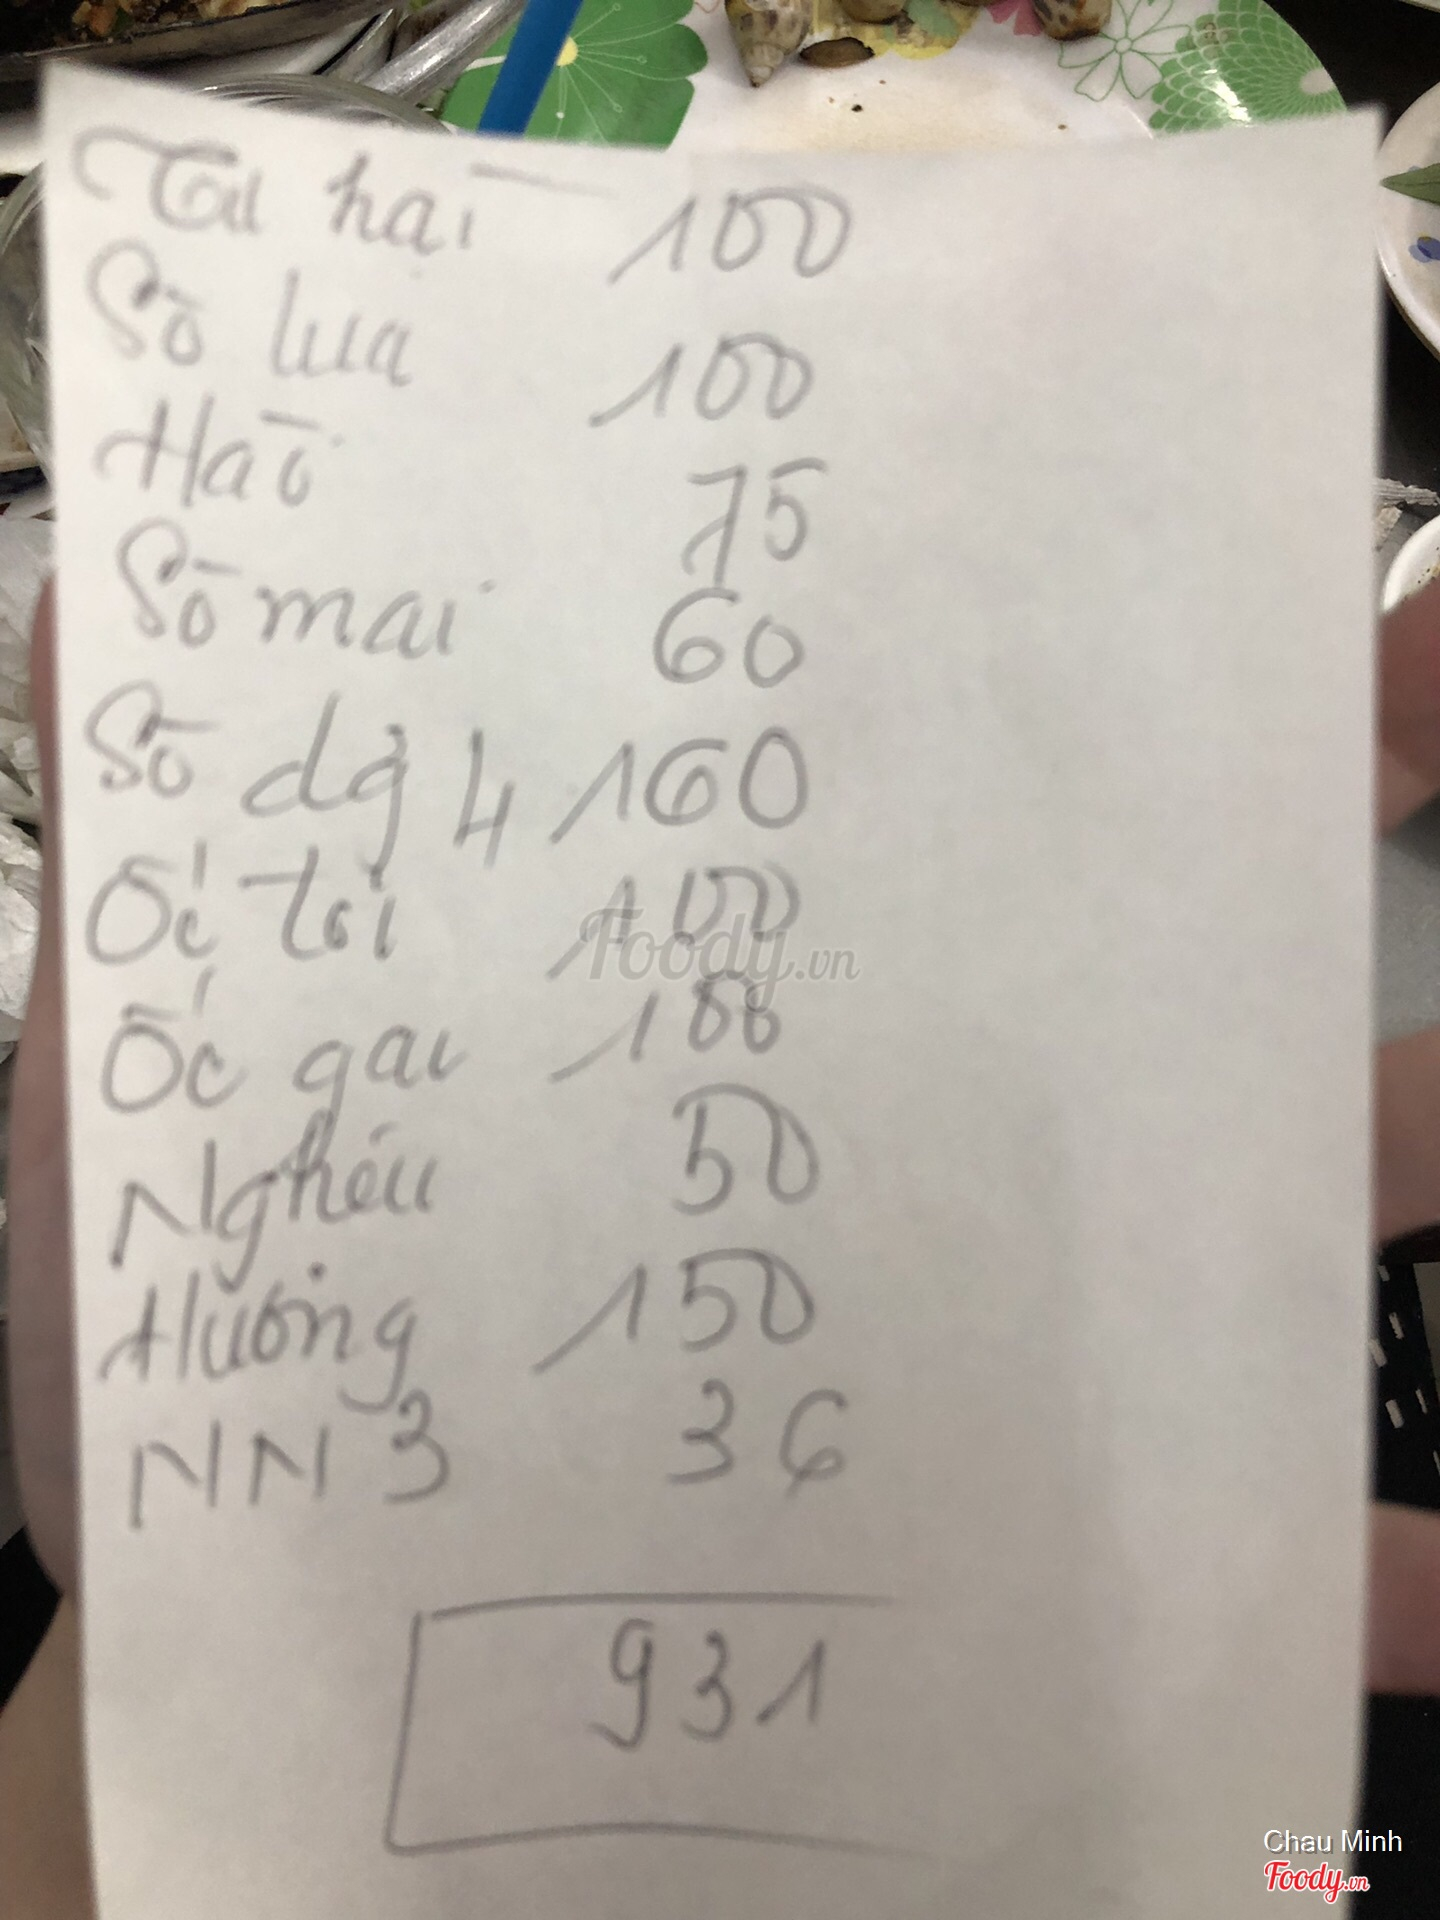 Tu hài 100
Sò lụa 100
Hào 75
Sò mai 60
Sò dg 4 160
Ốc tỏi 100
Ốc gai 100
Nghêu 50
Hương 150
NN 3 36
931
Foody.vn
Chau Minh
Foody.vn